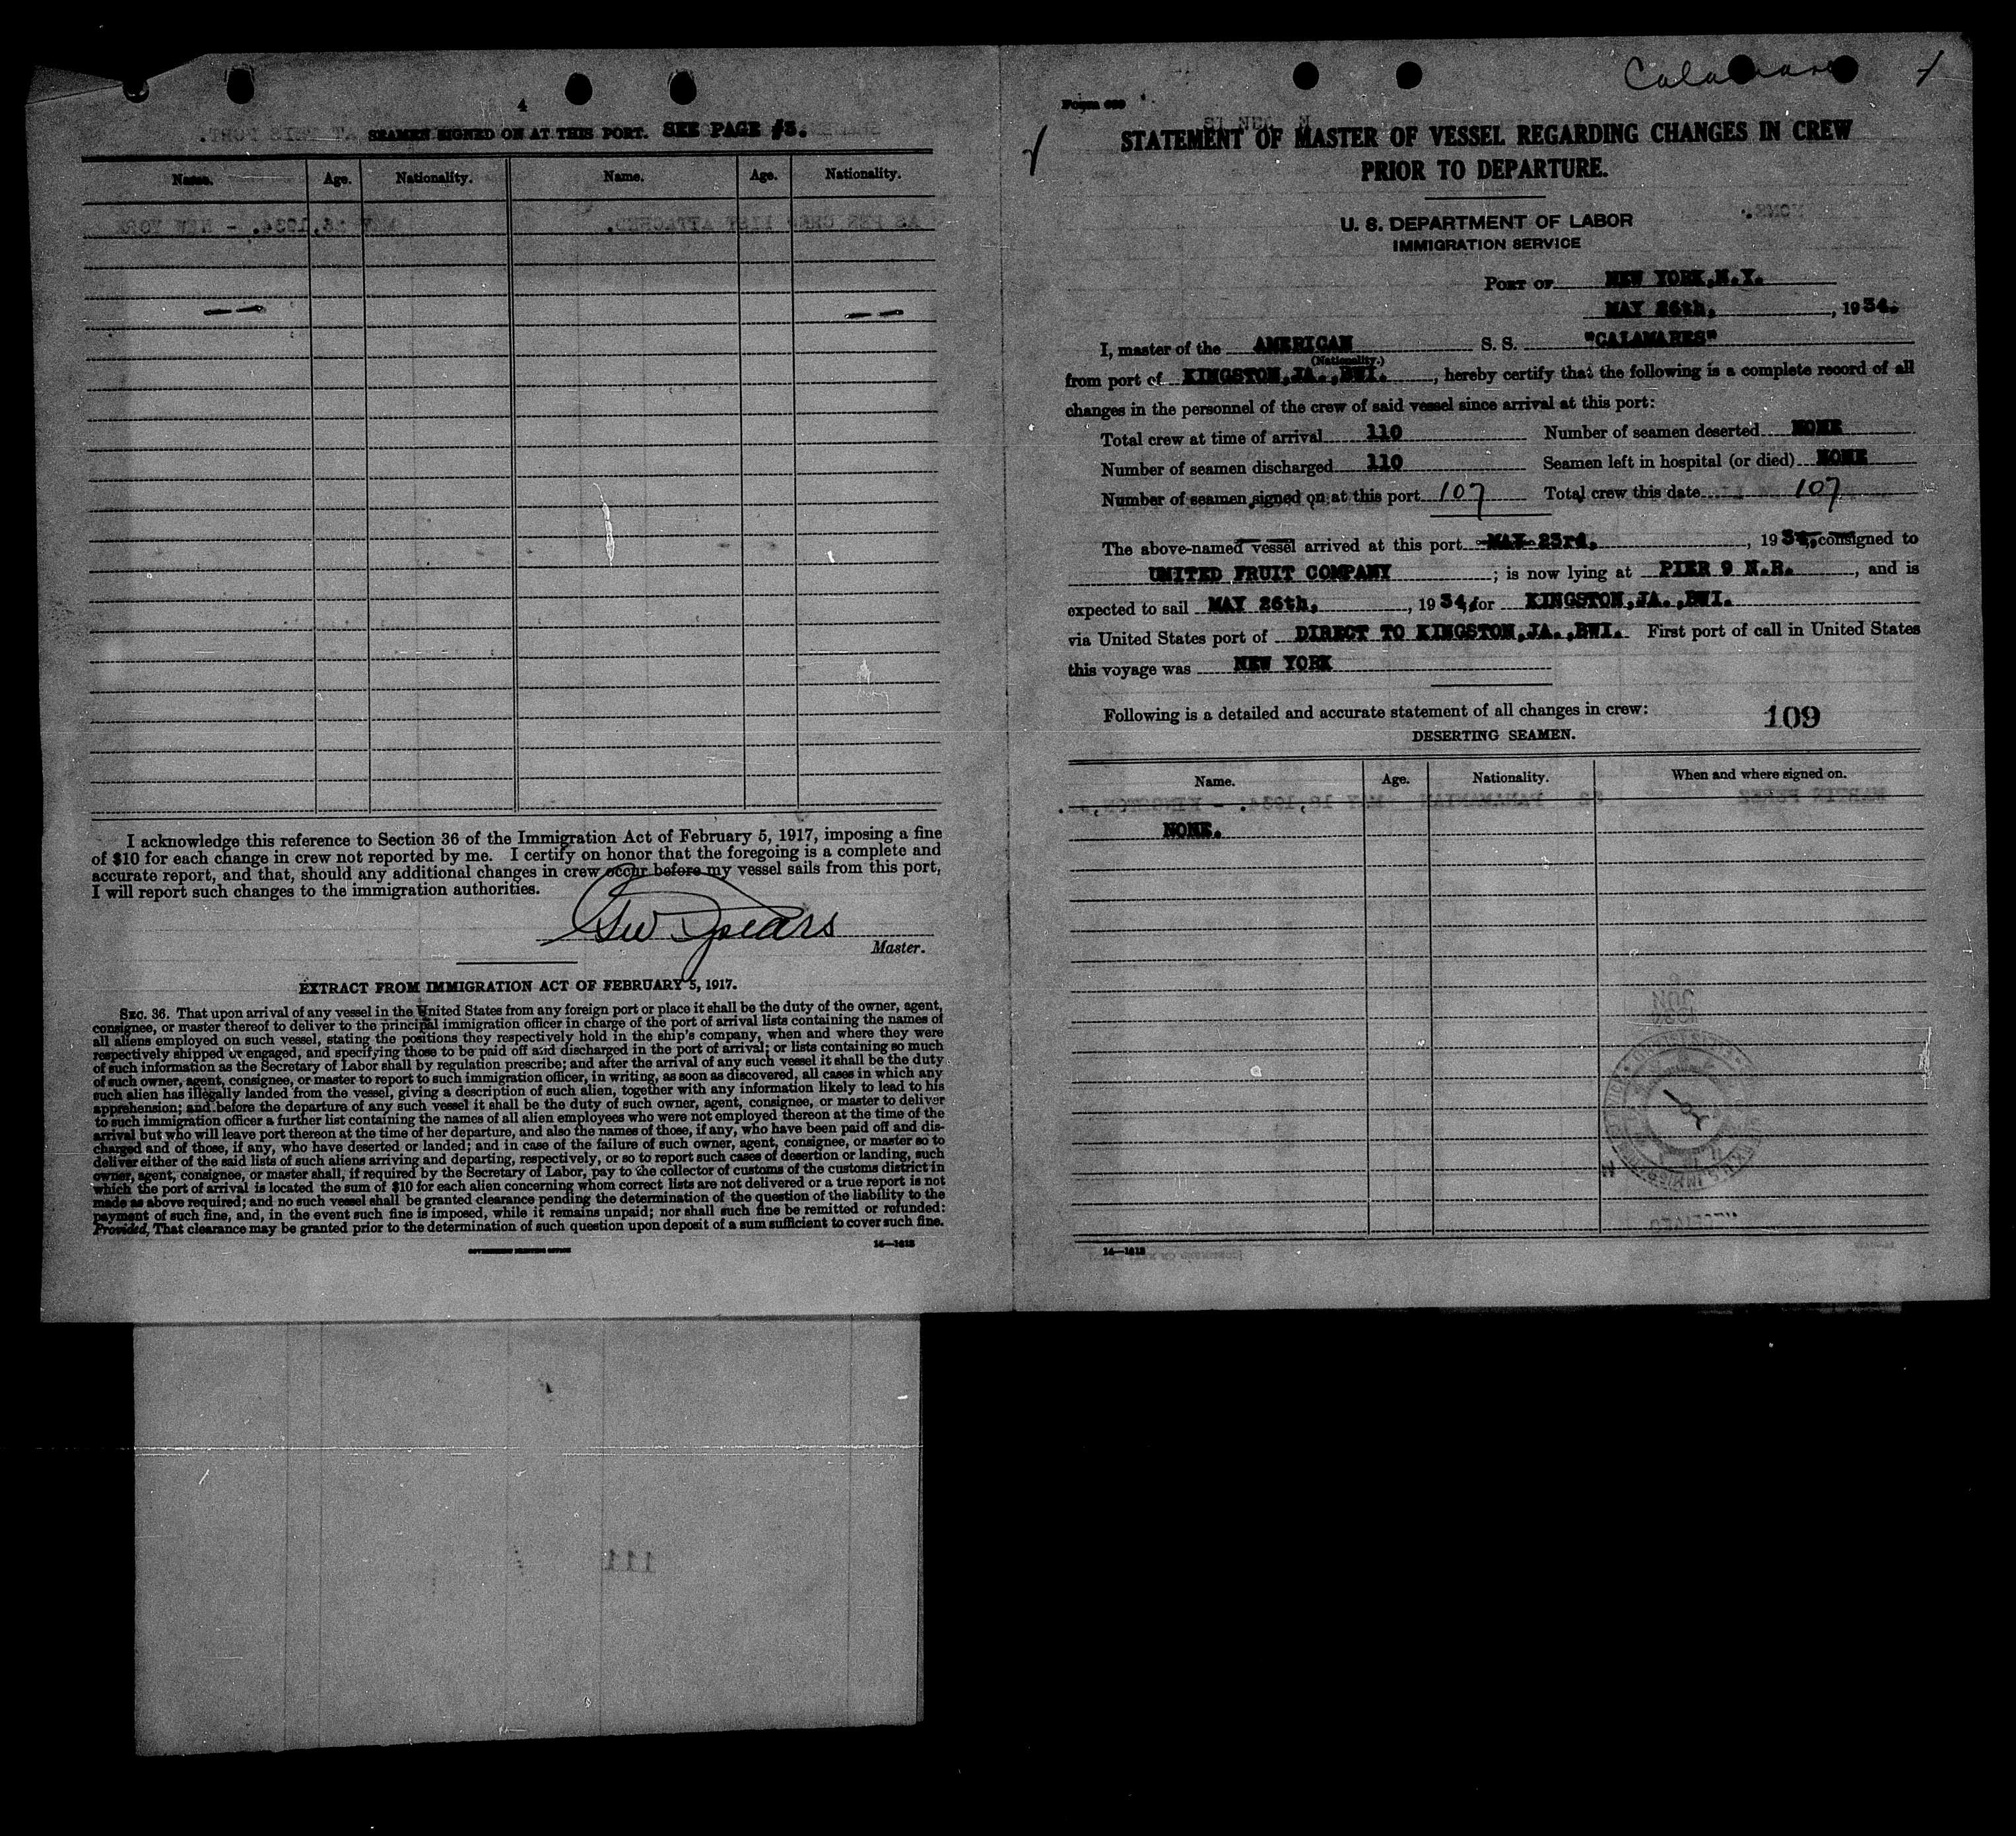 4
SEAMEN SIGNED ON AT THIS PORT. SEE PAGE #3.
Name. Age. Nationality. Name. Age. Nationality.
I acknowledge this reference to Section 36 of the Immigration Act of February 5, 1917, imposing a fine
of $10 for each change in crew not reported by me. I certify on honor that the foregoing is a complete and
accurate report, and that, should any additional changes in crew occur before my vessel sails from this port,
I will report such changes to the immigration authorities.
Spears
Master.
EXTRACT FROM IMMIGRATION ACT OF FEBRUARY 5, 1917.
SEC. 36. That upon arrival of any vessel in the United States from any foreign port or place it shall be the duty of the owner, agent,
consignee, or master thereof to deliver to the principal immigration officer in charge of the port of arrival lists containing the names of
all aliens employed on such vessel, stating the positions they respectively hold in the ship's company, when and where they were
respectively shipped or engaged, and specifying those to be paid off and discharged in the port of arrival; or lists containing so much
of such information as the Secretary of Labor shall by regulation prescribe; and after the arrival of any such vessel it shall be the duty
of such owner, agent, consignee, or master to report to such immigration officer, in writing, as soon as discovered, all cases in which any
such alien has illegally landed from the vessel, giving a description of such alien, together with any information likely to lead to his
apprehension; and before the departure of any such vessel it shall be the duty of such owner, agent, consignee, or master to deliver
to such immigration officer a further list containing the names of all alien employees who were not employed thereon at the time of the
arrival but who will leave port thereon at the time of her departure, and also the names of those, if any, who have been paid off and dis-
charged and of those, if any, who have deserted or landed; and in case of the failure of such owner, agent, consignee, or master so to
deliver either of the said lists of such aliens arriving and departing, respectively, or so to report such cases of desertion or landing, such
owner, agent, consignee, or master shall, if required by the Secretary of Labor, pay to the collector of customs of the customs district in
which the port of arrival is located the sum of $10 for each alien concerning whom correct lists are not delivered or a true report is not
made as above required; and no such vessel shall be granted clearance pending the determination of the question of the liability to the
payment of such fine, and, in the event such fine is imposed, while it remains unpaid; nor shall such fine be remitted or refunded:
Provided, That clearance may be granted prior to the determination of such question upon deposit of a sum sufficient to cover such fine.
GOVERNMENT PRINTING OFFICE 14—1613
111
Calamares
Form 689
STATEMENT OF MASTER OF VESSEL REGARDING CHANGES IN CREW
PRIOR TO DEPARTURE.
U. S. DEPARTMENT OF LABOR
IMMIGRATION SERVICE
PORT OF NEW YORK, N.Y.
MAY 26th, , 1934.
I, master of the AMERICAN S. S. "CALAMARES"
(Nationality.)
from port of KINGSTON,JA.,BWI. , hereby certify that the following is a complete record of all
changes in the personnel of the crew of said vessel since arrival at this port:
Total crew at time of arrival 110 Number of seamen deserted NONE
Number of seamen discharged 110 Seamen left in hospital (or died) NONE
Number of seamen signed on at this port 107 Total crew this date 107
The above-named vessel arrived at this port MAY 23rd, , 1934, consigned to
UNITED FRUIT COMPANY ; is now lying at PIER 9 N.R. , and is
expected to sail MAY 26th, , 1934, for KINGSTON,JA.,BWI.
via United States port of DIRECT TO KINGSTON,JA.,BWI. First port of call in United States
this voyage was NEW YORK
Following is a detailed and accurate statement of all changes in crew: 109
DESERTING SEAMEN.
Name. Age. Nationality. When and where signed on.
NONE.
14—1613